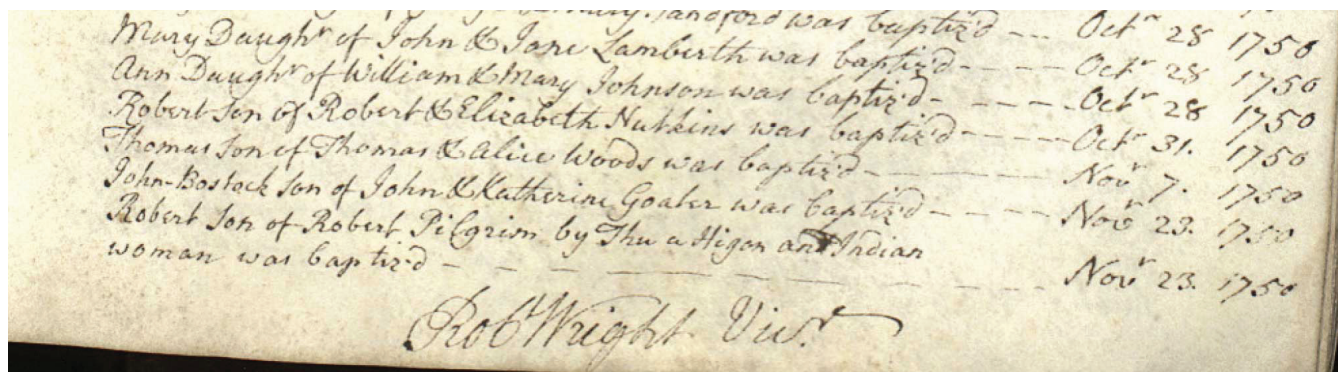 Mary. Sandford was baptiz'd --- Octr 28 1750
Mary Daughr of John & Jane Lamberth was baptiz'd ---- Octr 28 1750
Ann Daughr of William & Mary Johnson was baptiz'd ----- Octr 28 1750
Robert Son of Robert & Elizabeth Nutkins was baptiz'd ---- Octr 31. 1750
Thomas Son of Thomas & Alice Woods was baptiz'd ------ Novr 7. 1750
John-Bostock Son of John & Katherine Goater was baptiz'd ---- Novr 23. 1750
Robert Son of Robert Pilgrim by Thu a Higon an Indian
woman was baptiz'd ------------ Novr 23. 1750
Robt Wright Vicr